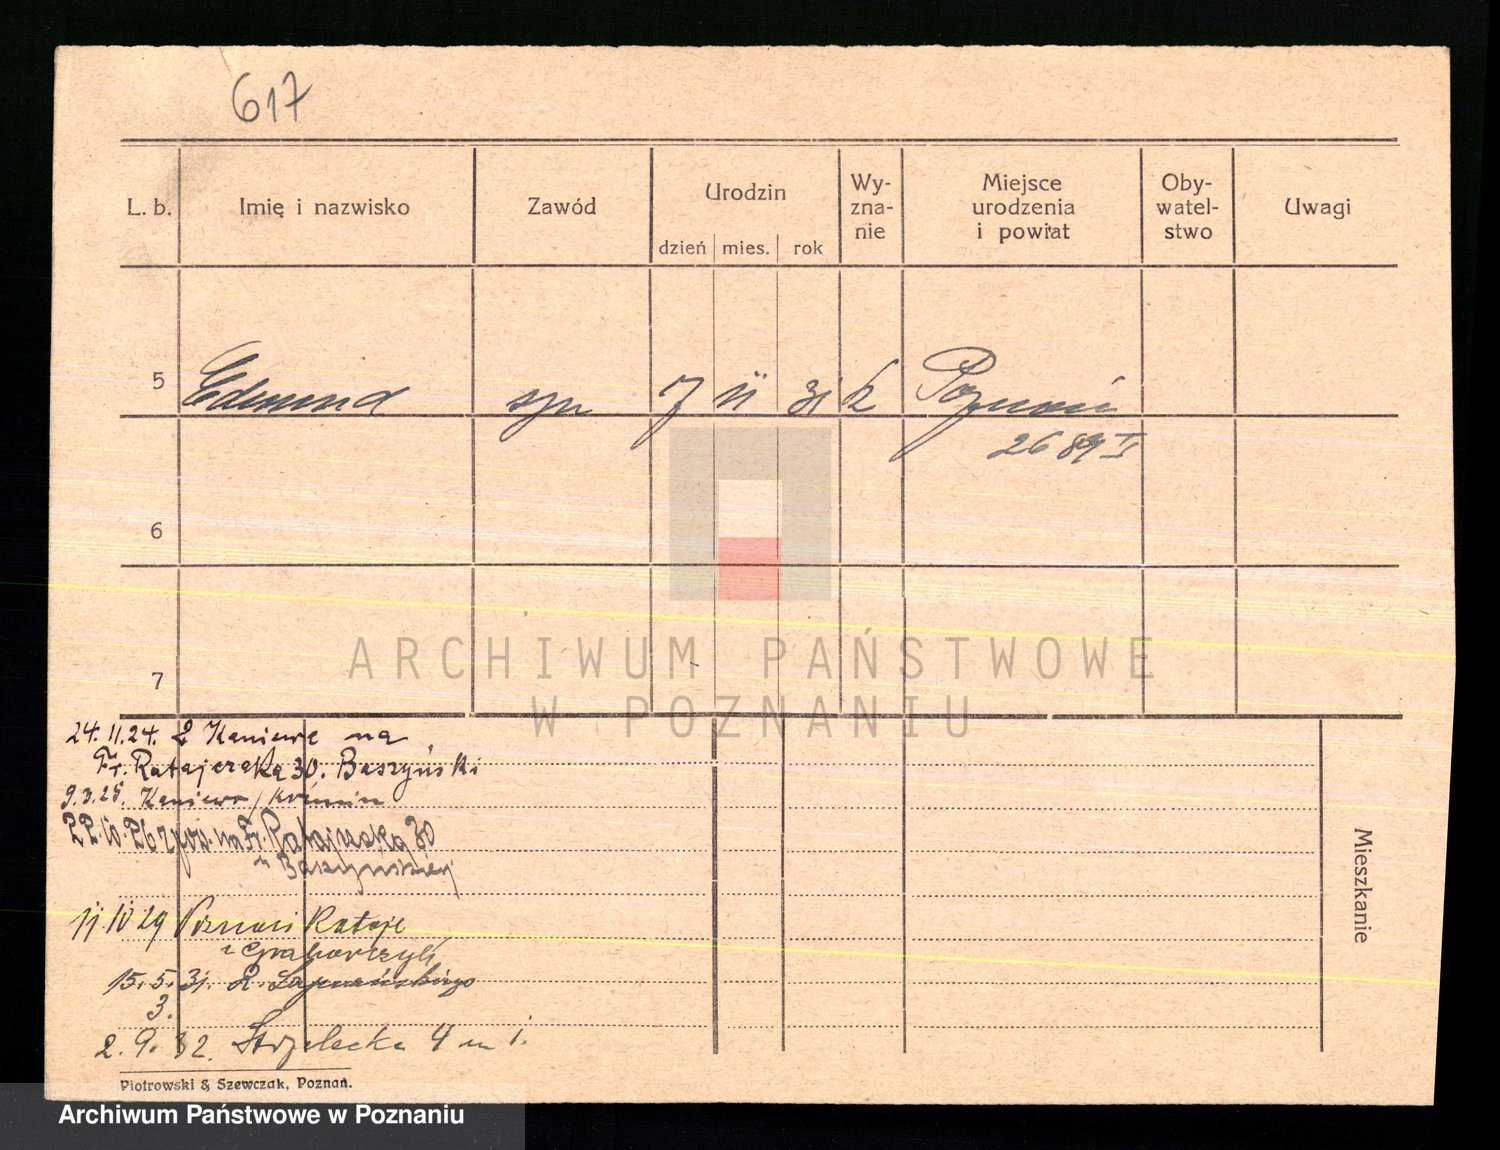 617
L. b. Imię i nazwisko Zawód Urodzin dzień mies. rok Wy-zna-nie Miejsce urodzenia i powiat Oby-watel-stwo Uwagi
5 Edmund syn 7 11 31 k Poznań
2689 I
6
7
ARCHIWUM PAŃSTWOWE
W POZNANIU
24. 11. 24. Z Kaniewa na
Fr. Ratajczaka 30. Baszyński
9. 3. 25. Kaniewo / Koźmin
22. 10. 26 z pow. na Fr. Ratajczaka 30
u Baszyńskiej
11. 10 29 Poznań Rataje
u
15. 5. 31.
3.
2. 9. 32. Strzelecka 4 m 1.
Mieszkanie
Piotrowski & Szewczak, Poznań.
Archiwum Państwowe w Poznaniu